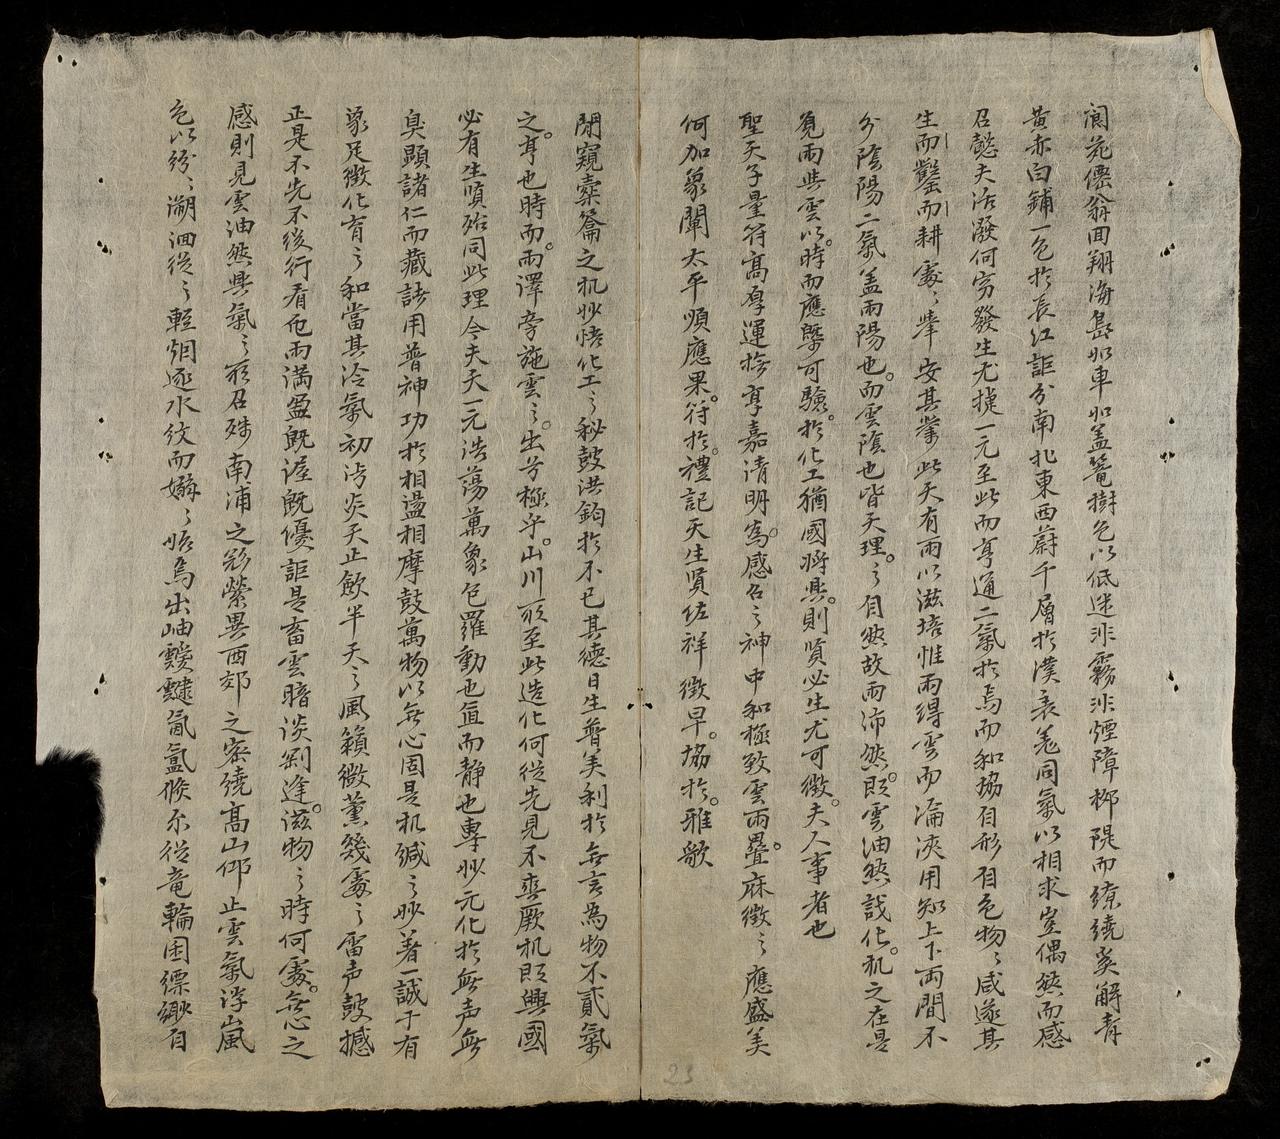 閬苑僊翁回翔海島如車如盖籠樹色以低迷非霧非煙障柳隄而繚繞奚解青
黃赤白鋪一色於長江詎分南北東西蔚千層於漢表蓋同氣以相求豈偶然而感
召懿夫活潑何窮發生尤捷一元至此而亨通二氣於焉而和協自形自色物〻咸遂其
生而鑿而耕處〻幸安其業此天有雨以滋培惟雨得雲而淪浹用知上下両間不
外陰陽二氣盖雨陽也而雲陰也皆天理之自然故雨沛然既雲油然哉化机之在是
覓雨與雲以時而應槩可驗於化工猶國將興則賢必生尤可徵夫人事者也
聖天子量符髙厚運撫亨嘉清明為感召之神中和極致雲雨疊庥徵之應盛美
何加象闡太平順應果符於禮記天生賢佐祥徵早協於雅歌
閒窺橐籥之机妙悟化工之秘鼓洪鈞於不已其德日生普美利於無言為物不貳氣
之亨也時而雨澤旁施雲之出兮極乎山川所至此造化何從先見不爽厥机既興國
必有生賢殆同此理今夫天一元浩蕩萬象包羅動也直而静也專妙元化於無声無
臭顯諸仁而藏諸用普神功於相盪相摩鼓萬物以無心固是机緘之妙著一誠于有
象足徵化育之和當其冷氣初消炎天止歇半天之風籟微薰幾處之雷声鼓撼
正是不先不後行看甩雨滿盈既渥既優詎是畜雲暗淡剛逢滋物之時何處無心之
感則見雲油然興氣之所召殊南浦之彩縈異西郊之密繞髙山仰止雲氣浮嵐
色以紛〻溯洄從之輕烟逐水紋而嫋〻恍為出岫靉靆氤氳倏尔從竜輪囷縹緲自